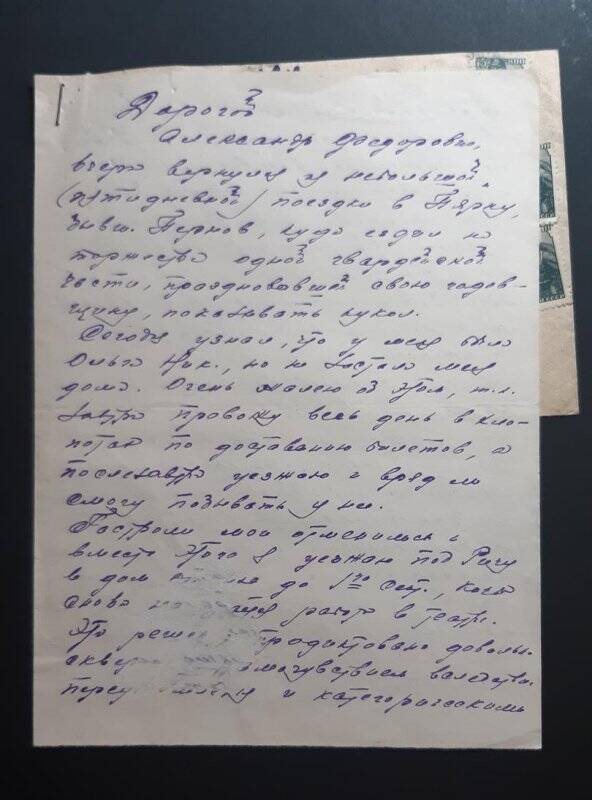 Дорогой
Александр Федорович,
вчера вернулся из небольшой
(пятидневной) поездки в Пярну,
бывш. Пернов, куда ездил на
торжество одной гвардейской
части, праздновавшей свою годов-
щину, показывать кукол.
Сегодня узнал, что у меня была
Ольга Ник., но не застала меня
дома. Очень жалею об этом, т.к.
завтра провожу весь день в хло-
потах по доставанию билетов, а
послезавтра уезжаю и вряд ли
смогу побывать у ней.
Гастроли мои отменились и
вместо этого я уезжаю под Ригу
в дом до 1го сент., когда
снова работа в театре.
Это продиктовано довольно
самочувствием вследствие
и категорическими